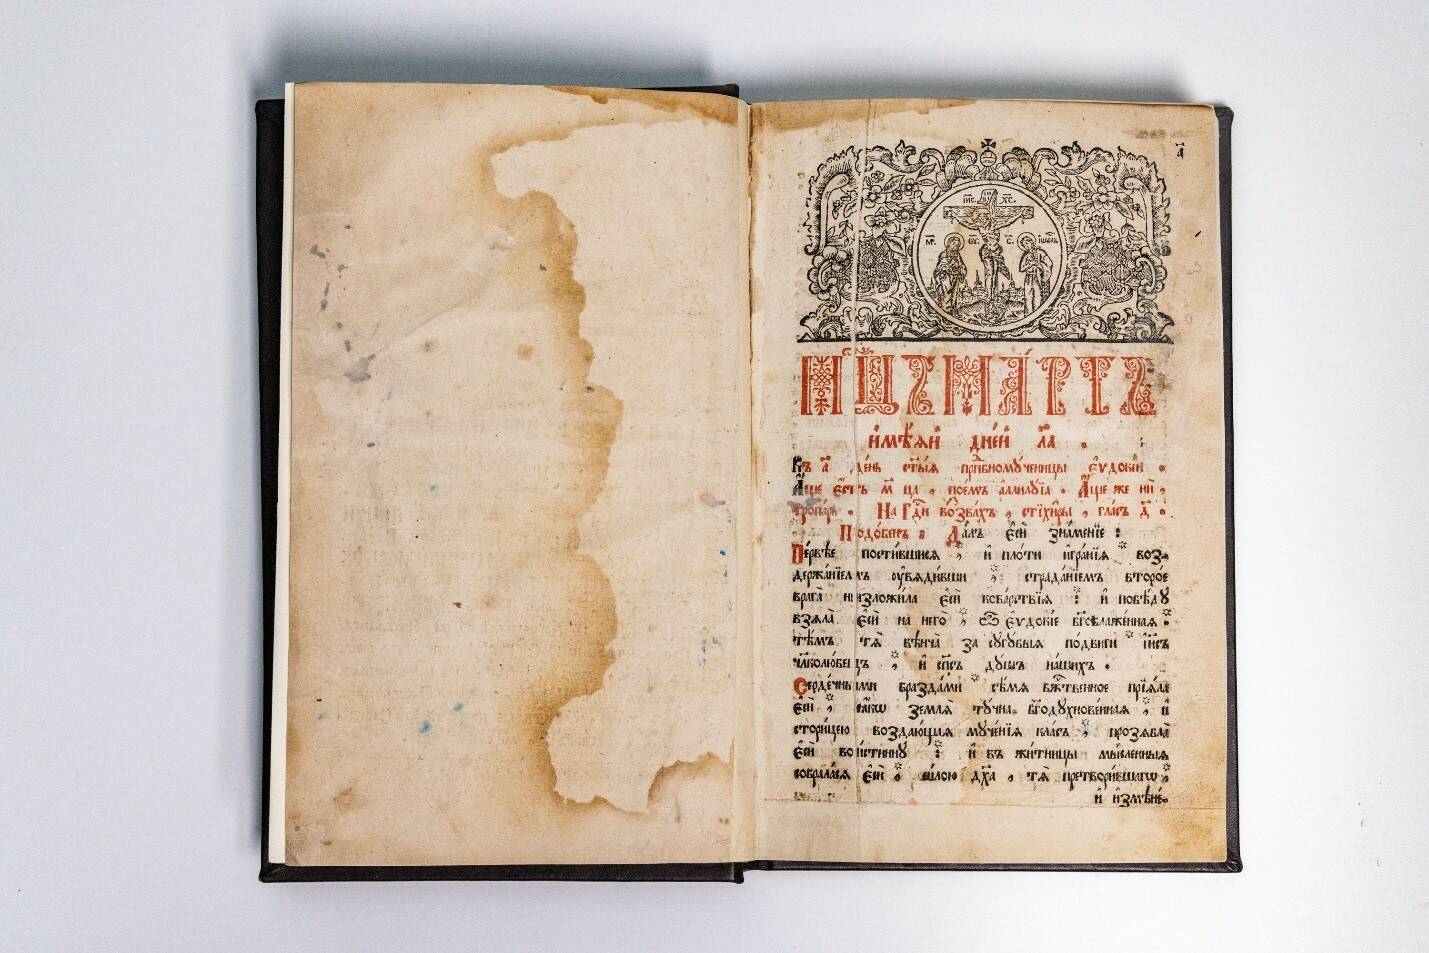 а҃
І҆И҃С. Х҃С.
М҃Р. Ѳ҃У. С. І҆ѡ҃ан.
МЦ҃Ъ МА́РТЪ
и҆мѣ́ѧй дне́й л҃а .
Въ а҃ де́нь ст҃ы́ѧ прпⷣбномꙋ́ченицы є҆ѵдокі́и .
А҆́ще є҆́сть м҃ца , пое́мъ а҆ллилꙋ́їа . А҆́ще же нѝ ,
тропа́рь . На Гдⷭ҇и воззва́хъ , стїхи́ры , гла́съ д҃ .
Подо́бенъ : Да́лъ є҆сѝ зна́менїе :
Пе́рвѣе пости́вшисѧ , и҆ пло́ти и҆гра́нїѧ воз-
держа́нїемъ ᲂу҆вѧди́вши : страда́нїемъ второ́е
врага̀ низложи́ла є҆сѝ кова́рствїѧ : и҆ побѣ́дꙋ
взѧла̀ є҆сѝ на него̀ , ѽ є҆ѵдокі́е бг҃облаже́нная :
тѣ́мъ тѧ̀ вѣнча̀ за сꙋгꙋ́быѧ по́двиги і҆и҃съ
чл҃колю́бецъ , и҆ сп҃съ дꙋ́шъ на́шихъ .
Серде́чными бразда́ми сѣ́мѧ бж҃е́ственное прїѧ́ла
є҆сѝ , ꙗ҆́кѡ землѧ̀ тꙋ́чна бг҃одꙋхнове́нная , и҆
стори́цею воздаю́щаѧ мꙋче́нїѧ кла́съ , прозѧбла̀
є҆сѝ вои́стиннꙋ : и҆ въ жи́тницы мы́сленныѧ
собрала́сѧ є҆сѝ , си́лою дх҃а , тѧ̀ претвори́вшагѡ ,
и҆ и҆змѣне-